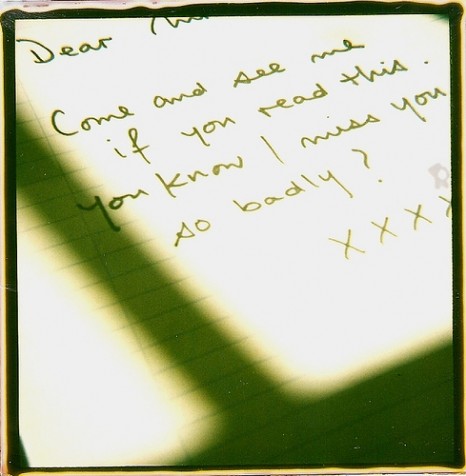 Dear
Come and see me
if you read this.
you know I miss you
so badly?
xxxx